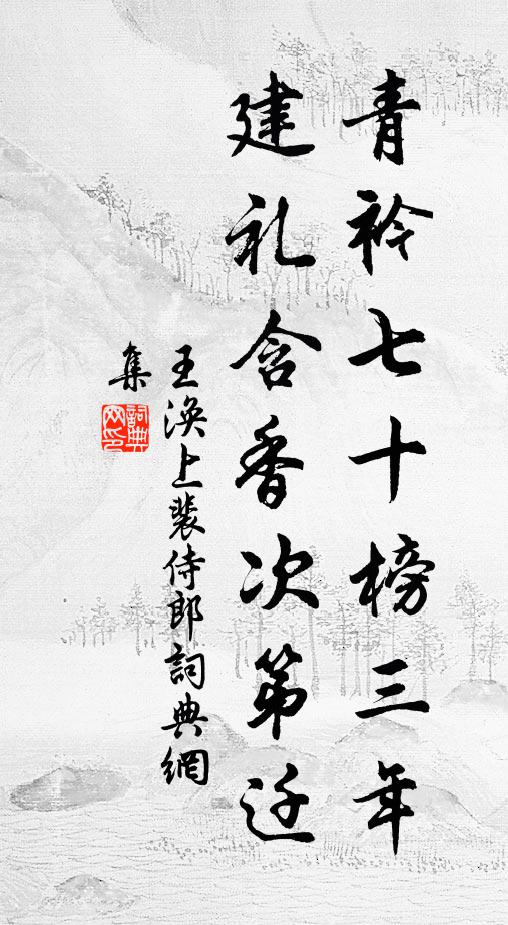 青衿七十榜三年
建礼含香次第迁
王渙上裴侍郎詞典網
集
詞典
网印